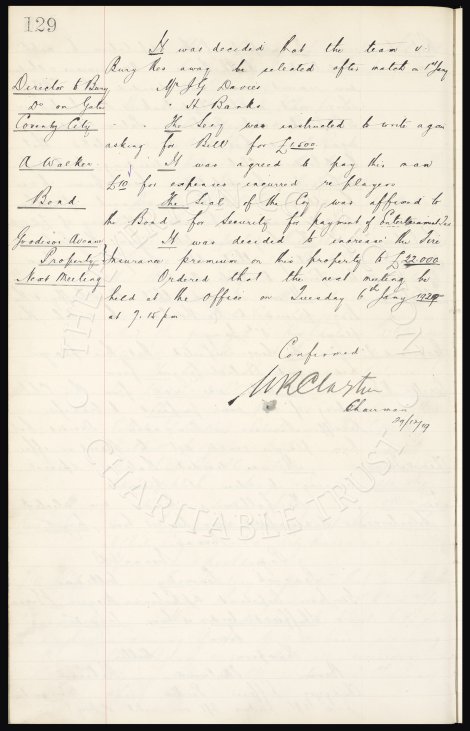 129
It was decided that the team v.
Bury Res away be selected after match on 1st Jany
Director to Bury Mr J G Davies
Do on Gate " H Banks
Coventry City. - - The Secy was instructed to write again
asking for Bill for £1500.
A Walker. It was agreed to pay this man
£10 for expenses incurred re players
Bond The Seal of the Coy was affixed to
the Bond for Security for payment of Entertainment Tax
Goodison Avenue It was decided to increase the Fire
Property. Insurance premium on this property to £22.000
Next Meeting Ordered that the next meeting be
held at the Office on Tuesday 6th Jany 1920
at 7.15 pm
Confirmed
W R Clayton
Chairman
29/12/19
CHARITABLE TRUST